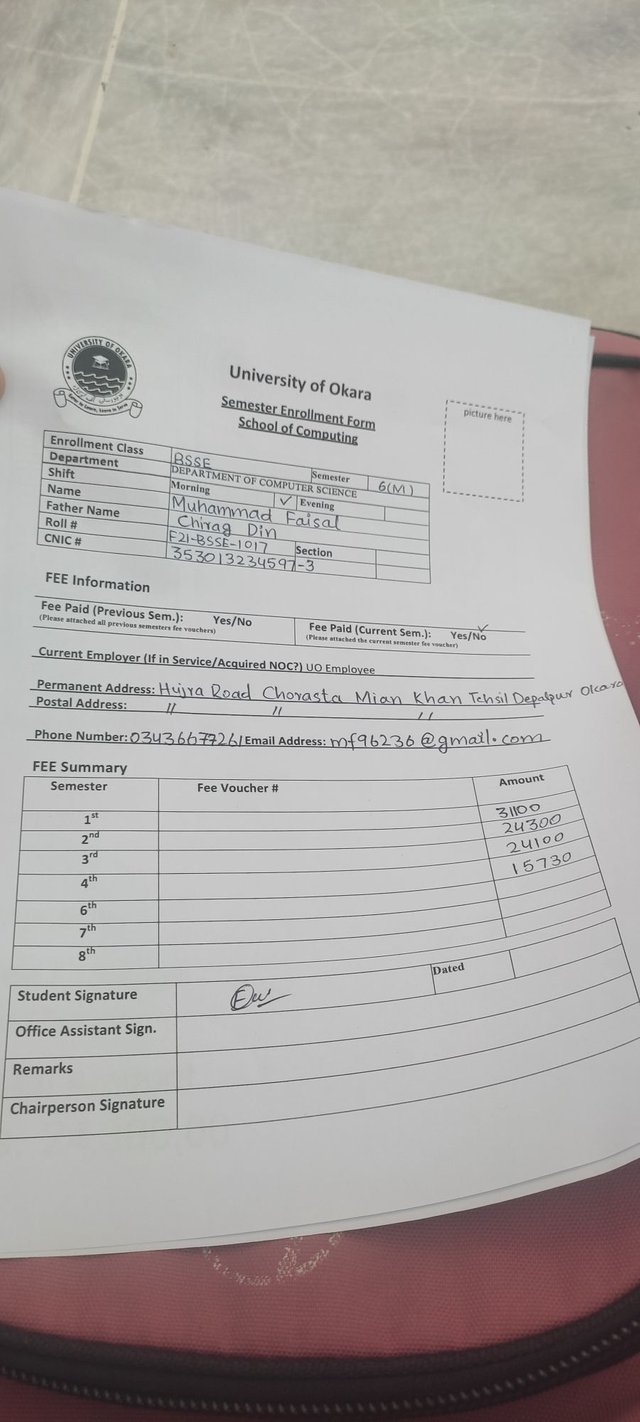 UNIVERSITY OF OKARA
University of Okara
Semester Enrollment Form
School of Computing
picture here
Enrollment Class BSSE Semester 6(M)
Department DEPARTMENT OF COMPUTER SCIENCE
Shift Morning ✓ Evening
Name Muhammad Faisal
Father Name Chirag Din
Roll # F21-BSSE-1017 Section
CNIC # 353013234597-3
FEE Information
Fee Paid (Previous Sem.): Yes/No Fee Paid (Current Sem.): Yes/No ✓
(Please attached all previous semesters fee vouchers) (Please attached the current semester fee voucher)
Current Employer (If in Service/Acquired NOC?) UO Employee
Permanent Address: Hujra Road Chorasta Mian Khan Tehsil Depalpur Okara
Postal Address: // // //
Phone Number: 03436677261 Email Address: mf96236@gmail.com
FEE Summary
Semester Fee Voucher # Amount
1st 31100
2nd 24300
3rd 24100
4th 15730
6th
7th
8th
Student Signature Dated
Office Assistant Sign.
Remarks
Chairperson Signature